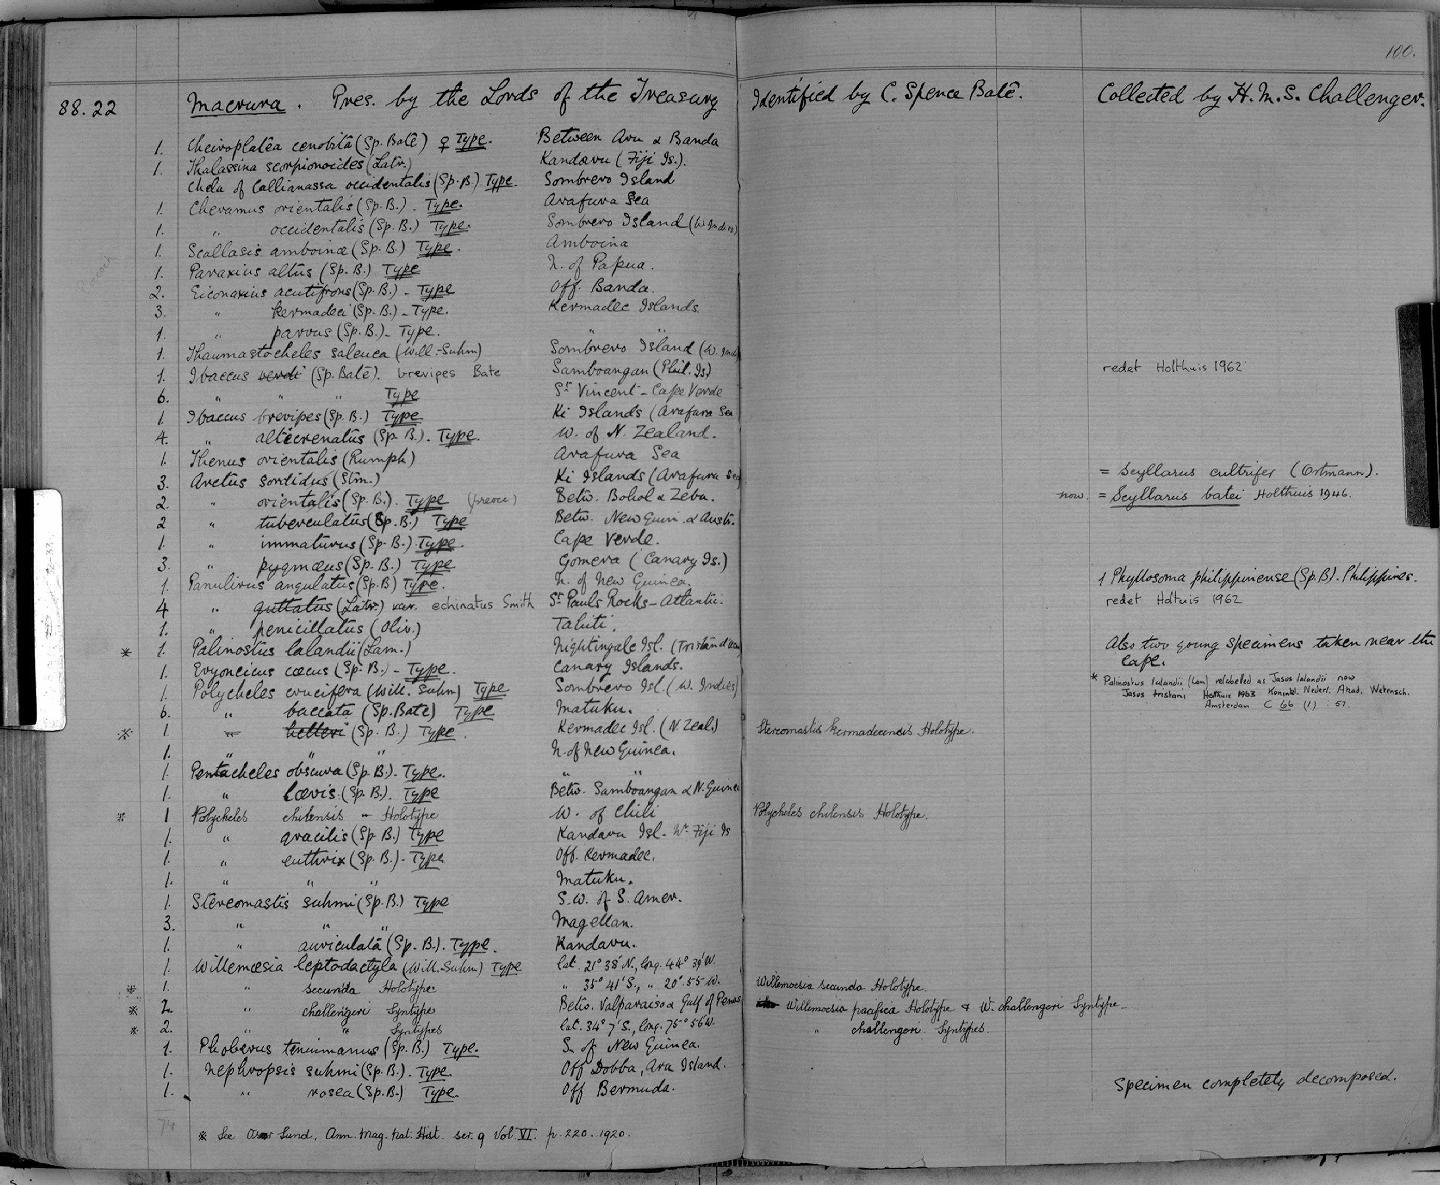 100.
88.22 Macrura. Pres. by the Lords of the Treasury Identified by C. Spence Bate. Collected by H.M.S. Challenger.
1. Cheiroplatea cenobita (Sp. Bate) ♀ Type. Between Aru & Banda
1. Thalassina scorpionoides (Latr.) Kandavu (Fiji Is.).
Chela of Callianassa occidentalis (Sp. B.) Type. Sombrero Island
1. Cheramus orientalis (Sp. B.). Type. Arafura Sea
1. " occidentalis (Sp. B.) Type. Sombrero Island (W. Indies)
1. Scallasis amboinæ (Sp. B.) Type. Amboina
1. Paraxius altus (Sp. B.) Type N. of Papua.
2. Eiconaxius acutifrons (Sp. B.) - Type Off Banda.
3. " kermadeci (Sp. B.) - Type. Kermadec Islands
1. " parvus (Sp. B.) - Type. " "
1. Thaumastocheles zaleuca (Will.-Suhm) Sombrero Island (W. Ind
1. Ibaccus verdi (Sp. Bate). brevipes Bate Samboangan (Phil. Is) redet Holthuis 1962
6. " " " Type St. Vincent - Cape Verde
1. Ibaccus brevipes (Sp. B.) Type Ki Islands (Arafura Sea
4. " altecrenatus (Sp. B.). Type. W. of N. Zealand.
1. Thenus orientalis (Rumph) Arafura Sea
3. Arctus sordidus (Stm.) Ki Islands (Arafura Sea) = Scyllarus cultrifer (Ortmann).
2. " orientalis (Sp. B.). Type Betw. Bohol & Zebu. now. = Scyllarus batei Holthuis 1946.
2 " tuberculatus (Sp. B.) Type Betw. New Guin. & Austr.
1. " immaturus (Sp. B.). Type. Cape Verde.
3. " pygmæus (Sp. B.) Type Gomera (Canary Is.)
1. Panulirus angulatus (Sp. B) Type. N. of New Guinea. 1 Phyllosoma philippinense (Sp. B). Philippines.
4 " guttatus (Latr.) var. echinatus Smith St. Pauls Rocks - Atlantic. redet Holthuis 1962
1. " penicillatus (Oliv.) Tahiti.
* 1. Palinostus lalandii (Lam.) Nightingale Isl. (Tristan d'Acu Also two young specimens taken near the Cape.
1. Eryoneicus cæcus (Sp. B.) - Type. Canary Islands. * Palinostus lalandii (Lam) relabelled as Jasus lalandii now
1. Polycheles crucifera (Will. Suhm) Type Sombrero Isl. (W. Indies) Jasus tristani Holthuis 1963 Koninkl. Nederl. Akad. Wetensch.
6. " baccata (Sp. Bate) Type Matuku. Amsterdam C 66 (1) : 57.
* 1. " helleri (Sp. B.) Type. Kermadec Isl. (N. Zeal.) Stereomastis kermadecensis Holotype.
1. " " N. of New Guinea.
1. Pentacheles obscura (Sp. B.). Type. " "
1. " lævis (Sp. B.). Type Betw. Samboangan & N. Guinea
* 1 Polycheles chilensis " Holotype W. of Chili Polycheles chilensis Holotype.
1. " gracilis (Sp. B.) Type Kandavu Isl. Fiji Is
1. " euthrix (Sp. B.) - Type Off Kermadec.
1. " " " Matuku.
1. Stereomastis suhmi (Sp. B.) Type S.W. of S. Amer.
3. " " " Magellan.
1. " auriculata (Sp. B.). Type. Kandavu.
1. Willemœsia leptodactyla (Will.-Suhm) Type lat. 21° 38' N., long. 44° 39' W.
* 1. " secunda Holotype " 35° 41' S., " 20° 55' W. Willemoesia secunda Holotype.
* 2. " challengeri Syntype Betw. Valparaiso & Gulf of Penas Willemoesia pacifica Holotype & W. challengeri Syntype.
* 2. " " Syntypes lat. 34° 7' S., long. 75° 56' W. " challengeri Syntypes.
1. Phoberus tenuimanus (Sp. B.) Type. S. of New Guinea.
1. Nephropsis suhmi (Sp. B.). Type. Off Dobba, Aru Island.
1. " rosea (Sp. B.) Type. Off Bermuda. Specimen completely decomposed.
* See Sund, Ann. Mag. Nat. Hist. ser. 9 Vol. VI. p. 220. 1920.